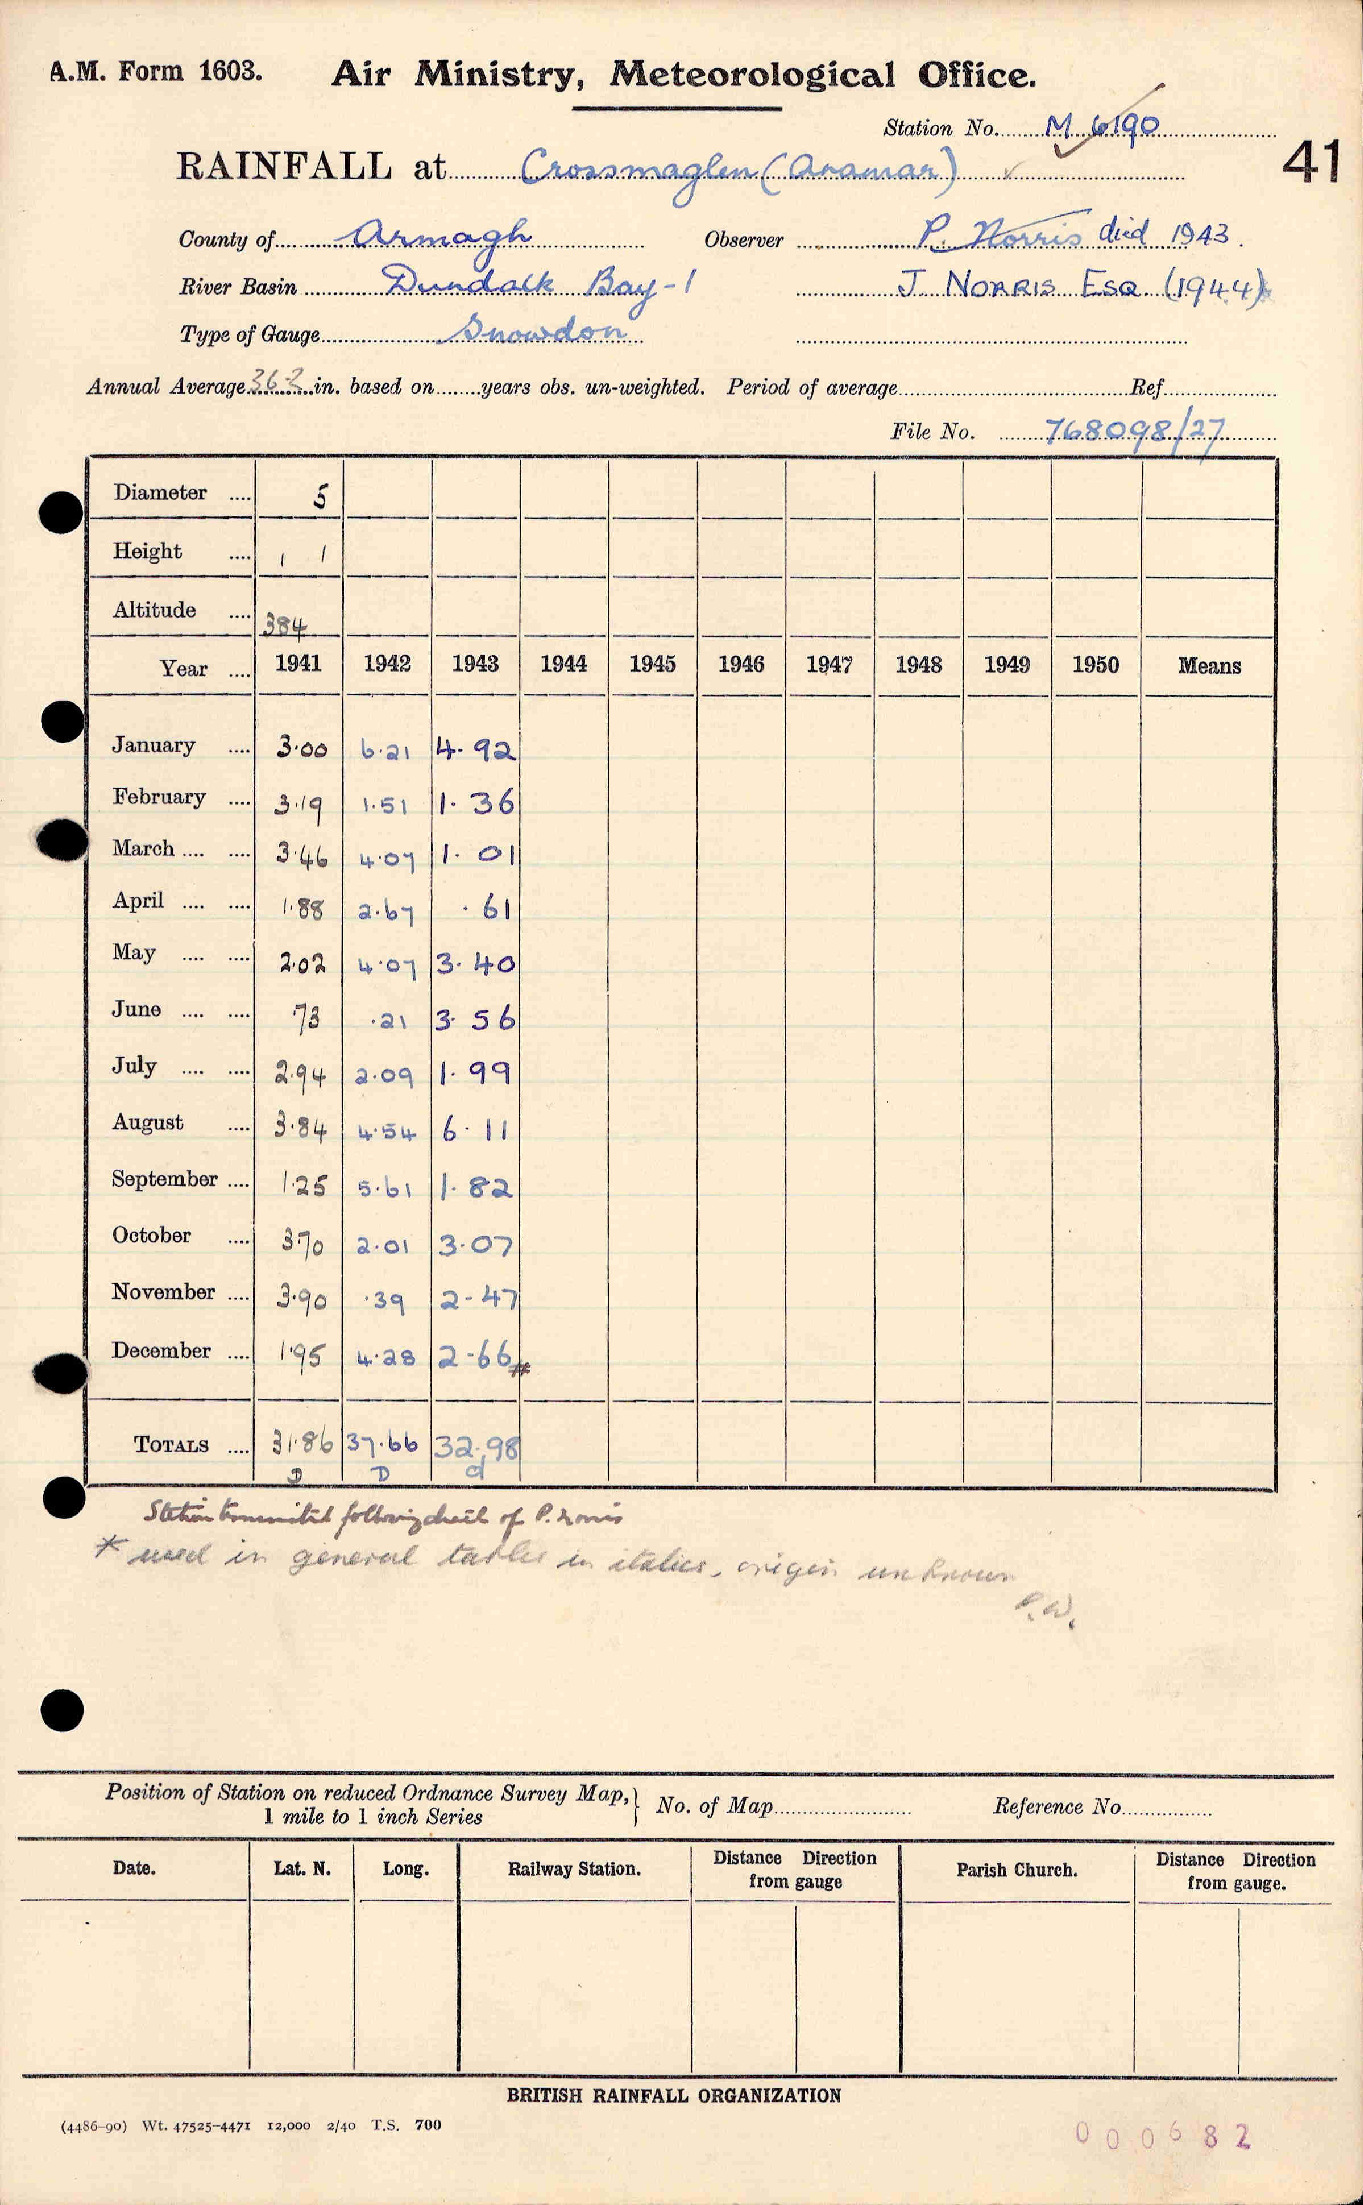 A.M. Form 1603. Air Ministry, Meteorological Office.
Station No. M 6190
41
RAINFALL at Crossmaglen (Anamar)
County of Armagh Observer P. Norris died 1943.
River Basin Dundalk Bay - 1 J NORRIS ESQ (1944)
Type of Gauge Snowdon
Annual Average 36.2 in. based on ........ years obs. un-weighted. Period of average ........ Ref ........
File No. 768098/27
Diameter .... 5
Height .... 1 1
Altitude .... 384
Year .... 1941 1942 1943 1944 1945 1946 1947 1948 1949 1950 Means
January .... 3.00 6.21 4.92
February .... 3.19 1.51 1.36
March .... .... 3.46 4.07 1.01
April .... .... 1.88 2.67 .61
May .... .... 2.02 4.07 3.40
June .... .... .73 .21 3.56
July .... .... 2.94 2.09 1.99
August .... 3.84 4.54 6.11
September .... 1.25 5.61 1.82
October .... 3.70 2.01 3.07
November .... 3.90 .39 2.47
December .... 1.95 4.28 2.66 #
TOTALS .... 31.86 37.66 32.98
D D d
Station following death of P. Norris
* used in general tables in italics, origin unknown
P.W.
Position of Station on reduced Ordnance Survey Map, } No. of Map ........ Reference No. ........
1 mile to 1 inch Series
Date. Lat. N. Long. Railway Station. Distance from gauge Direction Parish Church. Distance from gauge. Direction
BRITISH RAINFALL ORGANIZATION
(4486-90) Wt. 47525-4471 12,000 2/40 T.S. 700
000682